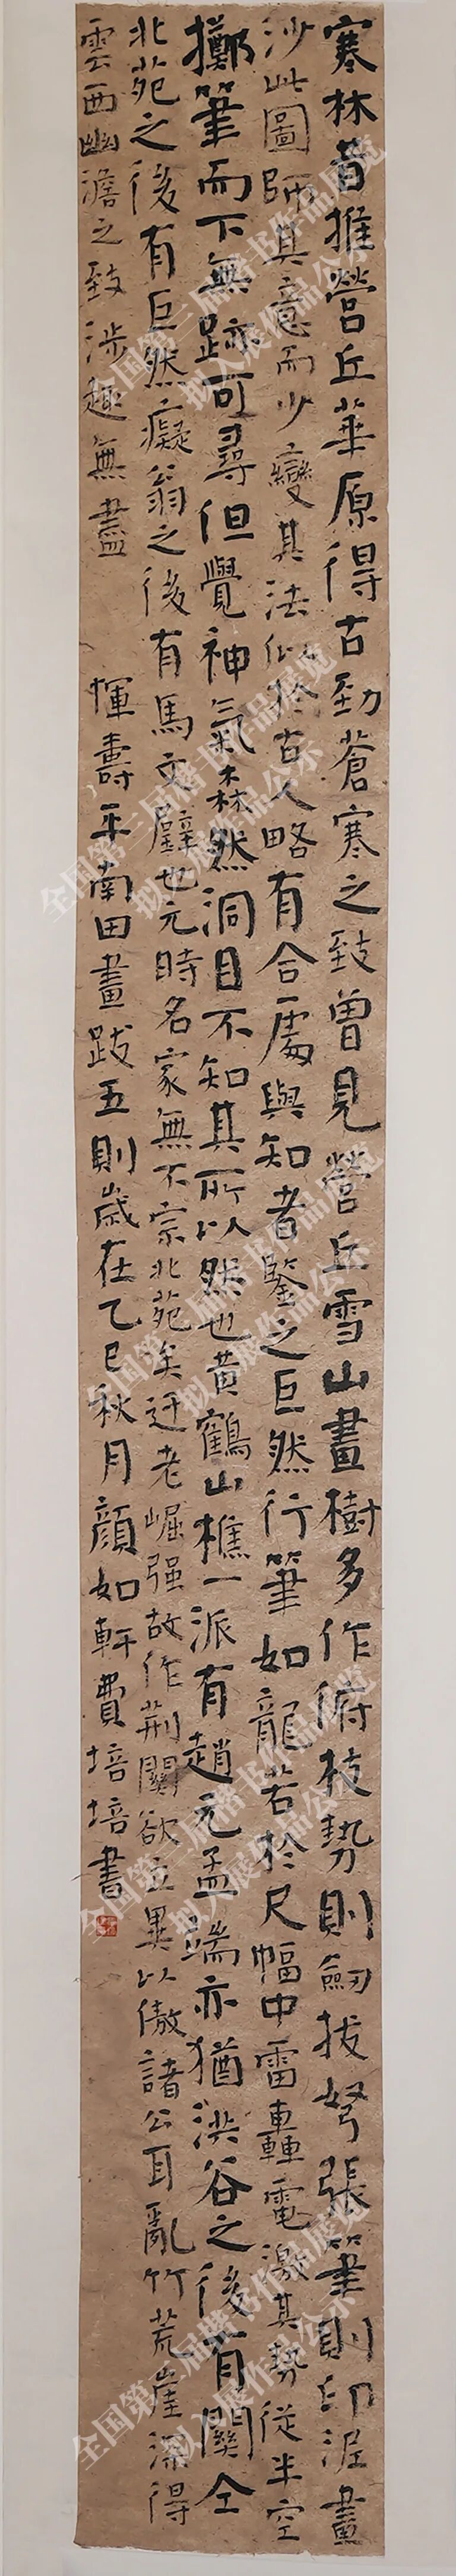 寒林昔推營丘華原得古勁蒼寒之致曾見營丘雪山畫樹多作俯枝勢則劒拔弩張筆則印泥畫
沙此圖師其意而少變其法似於古人略有合處與知者鑒之巨然行筆如龍若於尺幅中雷轟電激其勢從半空
擲筆而下無跡可尋但覺神氣森然洞目不知其所以然也黃鶴山樵一派有趙元孟端亦猶洪谷之後有關仝
北苑之後有巨然癡翁之後有馬文璧也元時名家無不宗北苑矣迂老崛强故作荊關欲立異以傲諸公耳亂竹荒崖深得
雲西幽澹之致涉趣無盡 惲壽平南田畫跋五則歲在乙巳秋月顏如軒費培培書
全国第三届楷书作品展览
拟入展作品公示
全国第三届楷书作品展览
拟入展作品公示
全国第三届楷书作品展览
拟入展作品公示
全国第三届楷书作品展览
拟入展作品公示
全国第三届楷书作品展览
拟入展作品公示